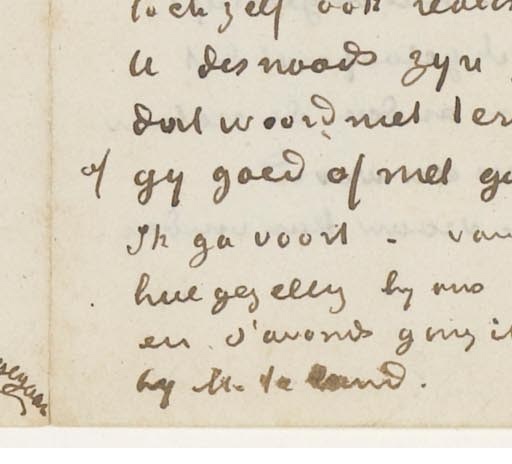 toch zelf ook
U desnoods zyn
dat woord met
of gy goed of met
Ik ga voort - van
heel gezellig by ons
en s'avonds ging
by M. te land.